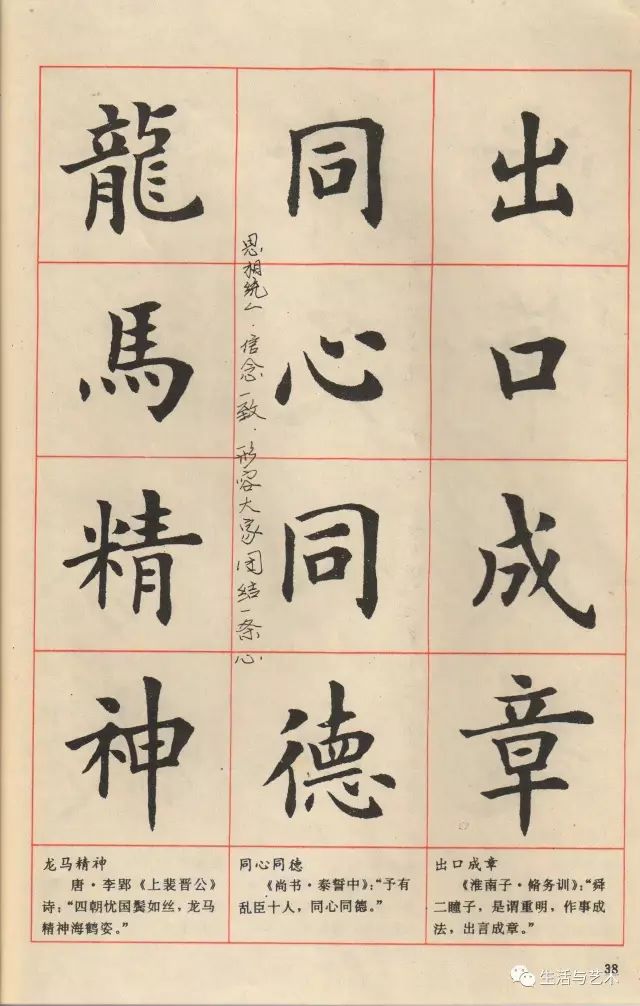 出口成章
同心同德
思相统一.信念一致.形容大家团结一条心.
龍馬精神
龙马精神
唐·李郢《上裴晋公》
诗：“四朝忧国鬓如丝，龙马
精神海鹤姿。”
同心同德
《尚书·泰誓中》：“予有
乱臣十人，同心同德。”
出口成章
《淮南子·脩务训》：“舜
二瞳子，是谓重明，作事成
法，出言成章。”
38
生活与艺术